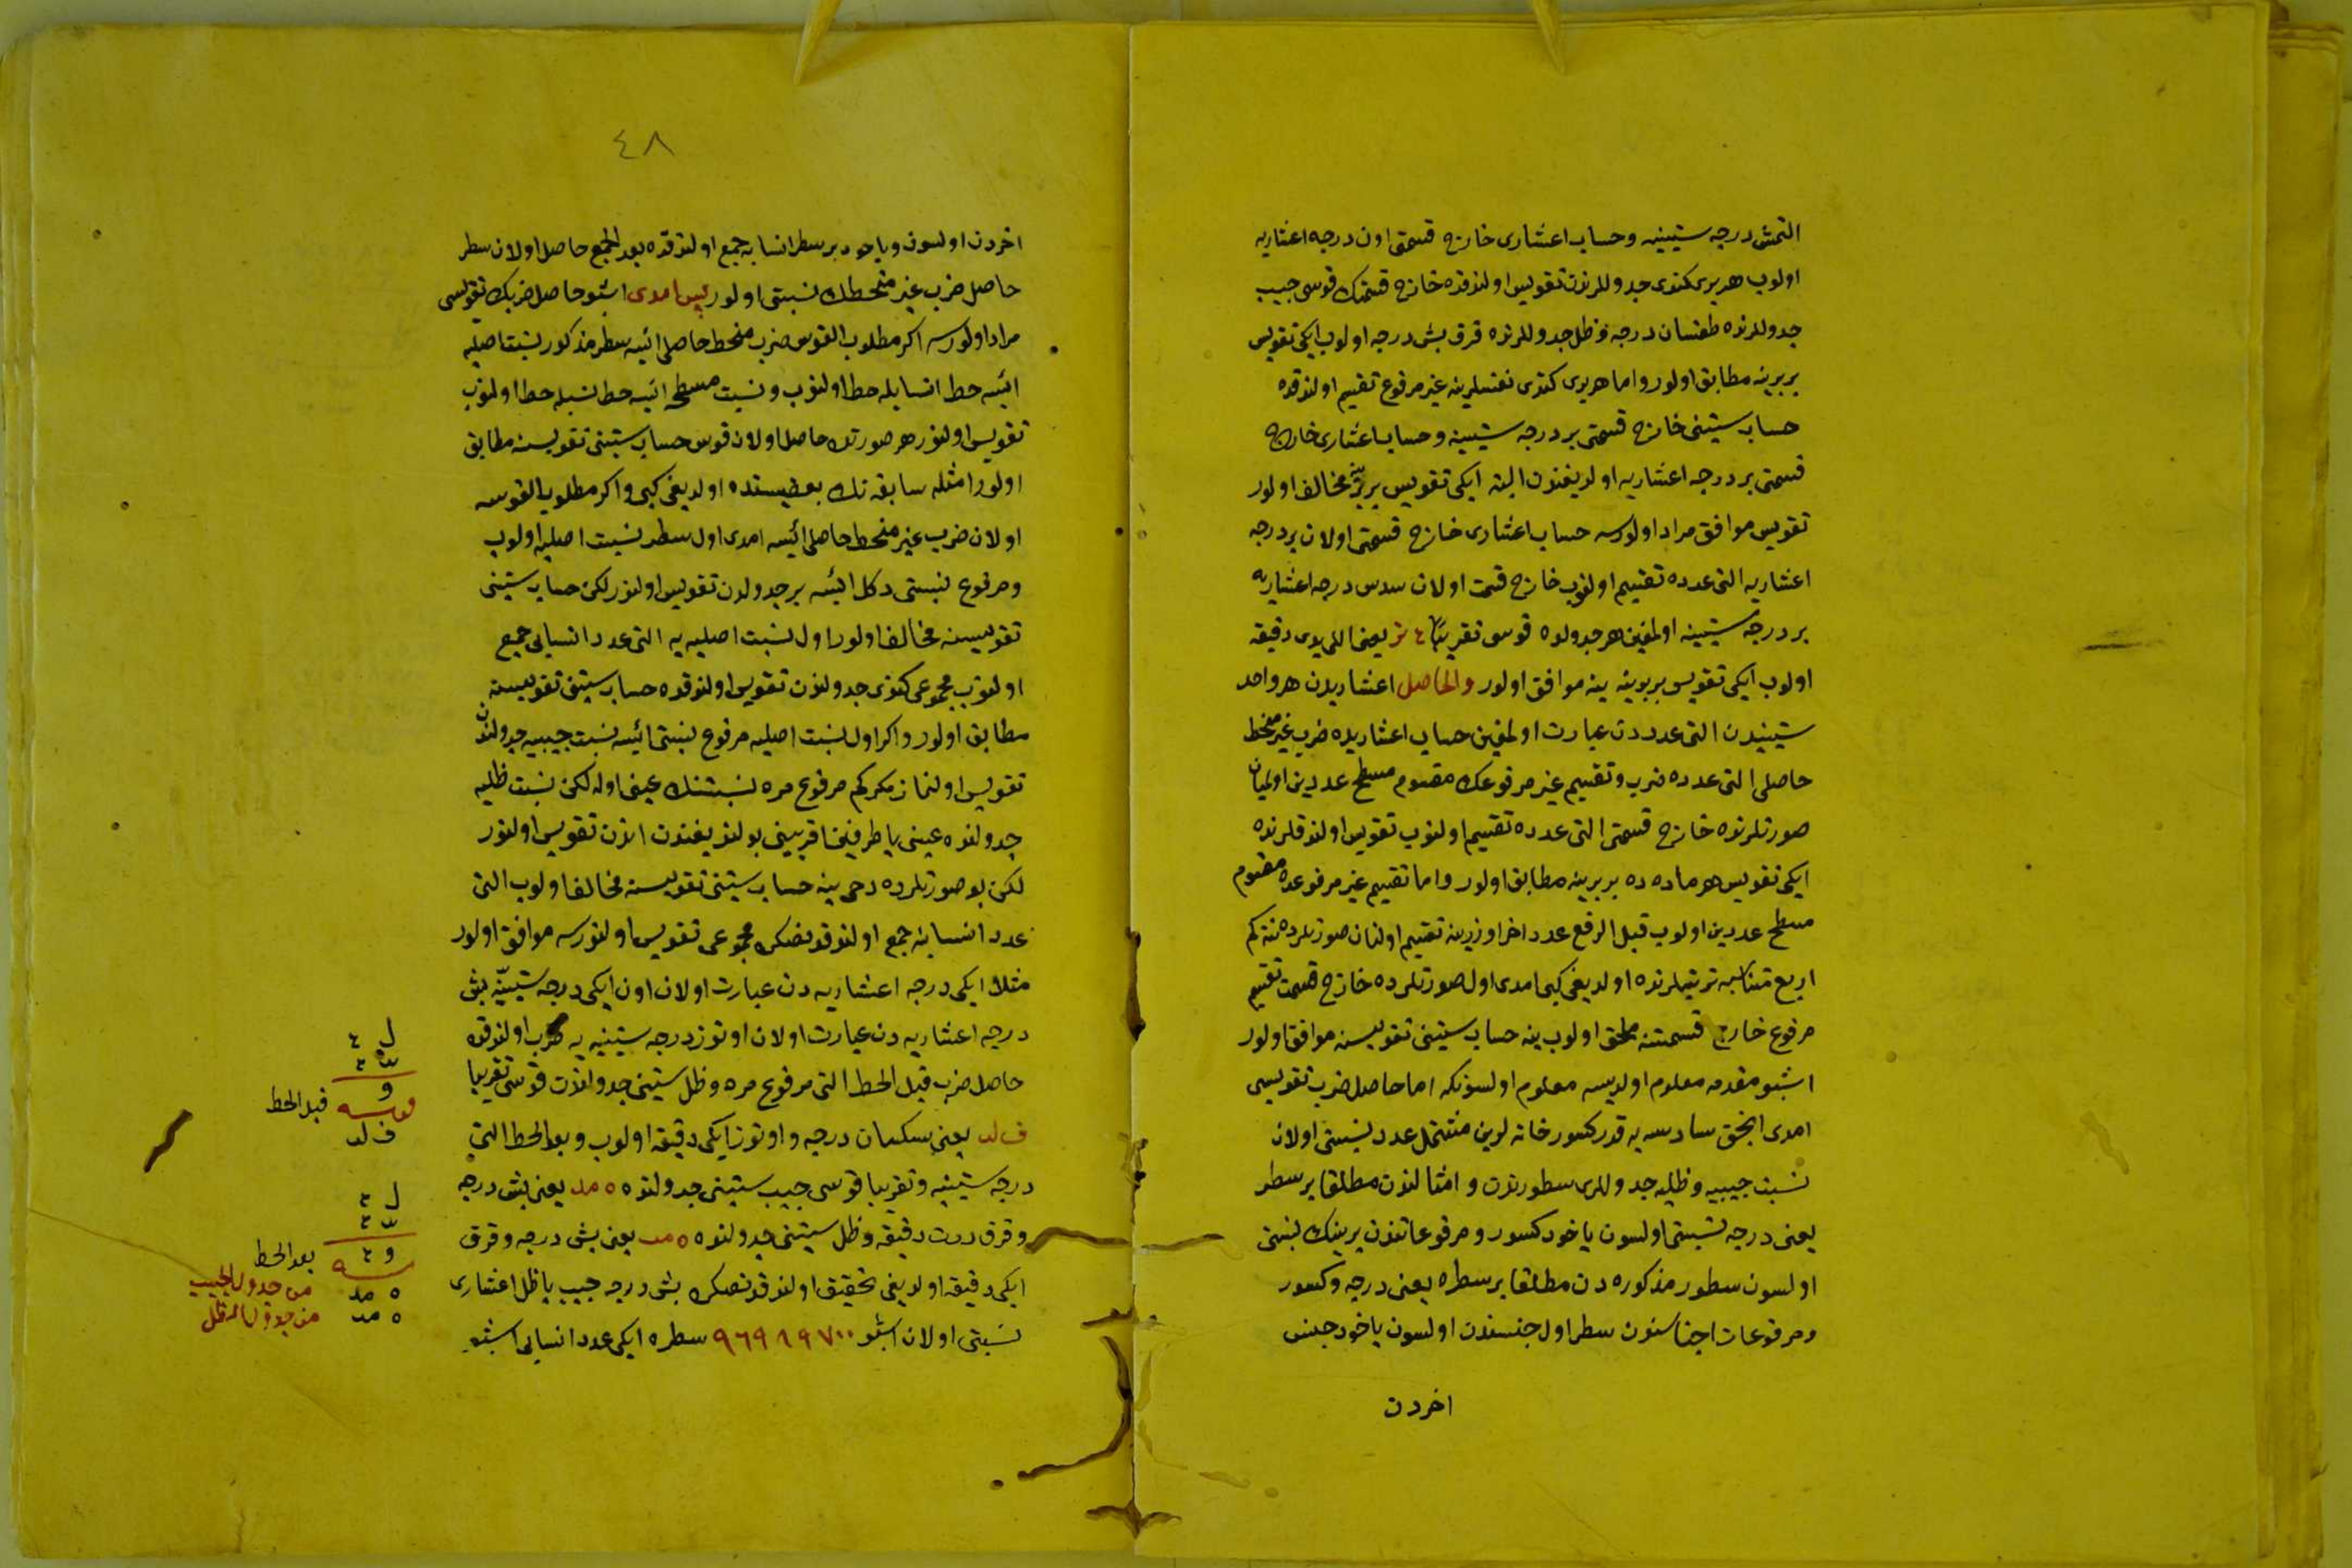 التمش درجه ستينيه وحساب اعشارى خارج قسمتى اون درجه اعشاريه
اولوب هر برى كندى جدوللرندن تقويس اولندقده خارج قسمتك قوسى جيب
جدوللرنده طقسان درجه وظل جدوللرنده قرق بش درجه اولوب ايكى تقويس
بربرينه مطابق اولور واما هر برى كندى نفسلرينه غير مرفوع تقسيم اولندقده
حساب ستينى خارج قسمتى بر درجه ستينيه وحساب اعشارى خارج
قسمتى بر درجه اعشاريه اولديغندن البته ايكى تقويس بربرينه مخالف اولور
تقويس موافق مراد اولورسه حساب اعشارى خارج قسمتى اولان بر درجه
اعشاريه التى عدده تقسيم اولنوب خارج قسمت اولان سدس درجه اعشاريه
بر درجه ستينيه اولمغين هر جدولده قوس تقريبا يعنى اللى يدى دقيقه
اولوب ايكى تقويس بربرينه ينه موافق اولور والحاصل اعشاريدن هر واحد
ستينيدن التى عدددن عبارت اولمغين حساب اعشاريده ضرب غير منحط
حاصلى التى عدده ضرب وتقسيم غير مرفوعك مقسوم مسطح عددين اولميان
صورتلرنده خارج قسمتى التى عدده تقسيم اولنوب تقويس اولندقلرنده
ايكى تقويس هر ماده ده بربرينه مطابق اولور واما تقسيم غير مرفوعده مقسوم
مسطح عددين اولوب قبل الرفع عدد اخر اوزرينه تقسيم اولنان صورتلرده نته كم
اربع متناسبه ترتيبلرنده اولديغى كبى امدى اول صورتلرده خارج قسمت تقسيم
مرفوع خارج قسمتنه ملحق اولوب ينه حساب ستينى تقويسنه موافق اولور
اشبو مقدمه معلوم اولديسه معلوم اولسونكه اما حاصل ضرب تقويسى
امدى انجق سادسه يه قدر كسور خانه لرين مشتمل عدد نسبتى اولان
نسبت جيبيه وظليه جدوللرى سطورندن و امثالندن مطلقا بر سطر
يعنى درجه نسبتى اولسون ياخود كسور ومرفوعاتندن برينك نسبتى
اولسون سطور مذكوره دن مطلقا بر سطره يعنى درجه وكسور
ومرفوعات اجناسندن سطر اول جنسندن اولسون ياخود جنس
اخردن
٤٨
اخردن اولسون وياخود بر سطر انسابه جمع اولندقده بعد الجمع حاصل اولان سطر
حاصل ضرب غير منحطك نسبتى اولور پس امدى اشبو حاصل ضربك تقويسى
مراد اولورسه اكر مطلوب القوس ضرب منحط حاصلى ائيسه سطر مذكور نسبت اصليه
ائيسه حط انسابله حط اولنوب ونسبت مسطحه ائيسه حط نسبله حط اولنوب
تقويس اولنور هر صورتده حاصل اولان قوس حساب ستينى تقويسنه مطابق
اولور امثله سابقه نك بعضيسنده اولديغى كبى واكر مطلوب القوسه
اولان ضرب غير منحط حاصلى ائيسه امدى اول سطر نسبت اصليه اولوب
ومرفوع نسبتى دكل ائيسه بر جدولدن تقويس اولنور لكن حساب ستينى
تقويسنه مخالف اولور اول نسبت اصليه يه التى عدد انسابى جمع
اولنوب مجموعى كندى جدولندن تقويس اولندقده حساب ستينى تقويسنه
مطابق اولور واكر اول نسبت اصليه مرفوع نسبتى ائيسه نسبت جيبيه جدولندن
تقويس اولنماز مكركم مرفوع مره نسبتنك عينى اوله لكن نسبت ظليه
جدولنده عينى يا طرفينى اقربينى بولنديغندن اندن تقويس اولنور
لكن بو صورتلرده دخى ينه حساب ستينى تقويسنه مخالف اولوب التى
عدد انسابنه جمع اولندقدنصكره مجموعى تقويس اولنورسه موافق اولور
مثلا ايكى درجه اعشاريه دن عبارت اولان اون ايكى درجه ستينيه بش
درجه اعشاريه دن عبارت اولان اوتوز درجه ستينيه يه ضرب اولندقده
حاصل ضرب قبل الحط التى مرفوع مره وظل ستينى جدولندن قوسى تقريبا
ف لب يعنى سكسان درجه و اوتوز ايكى دقيقه اولوب وبعد الحط التى
درجه ستينيه وتقريبا قوسى جيب ستينى جدولنده ٥ مد يعنى بش درجه
وقرق درت دقيقه وظل ستينى جدولنده ٥ مب يعنى بش درجه وقرق
ايكى دقيقه اولديغى تحقيق اولندقدنصكره بش درجه جيب يا ظل اعشارى
نسبتى اولان اشبو ٩٦٩٨٩٧٠٠ سطره ايكى عدد انسابى اشبو
و
قوسه قبل الحط
ف لب
بعد الحط
٥ مد من جدول الجيب
٥ مب من جدول الظل